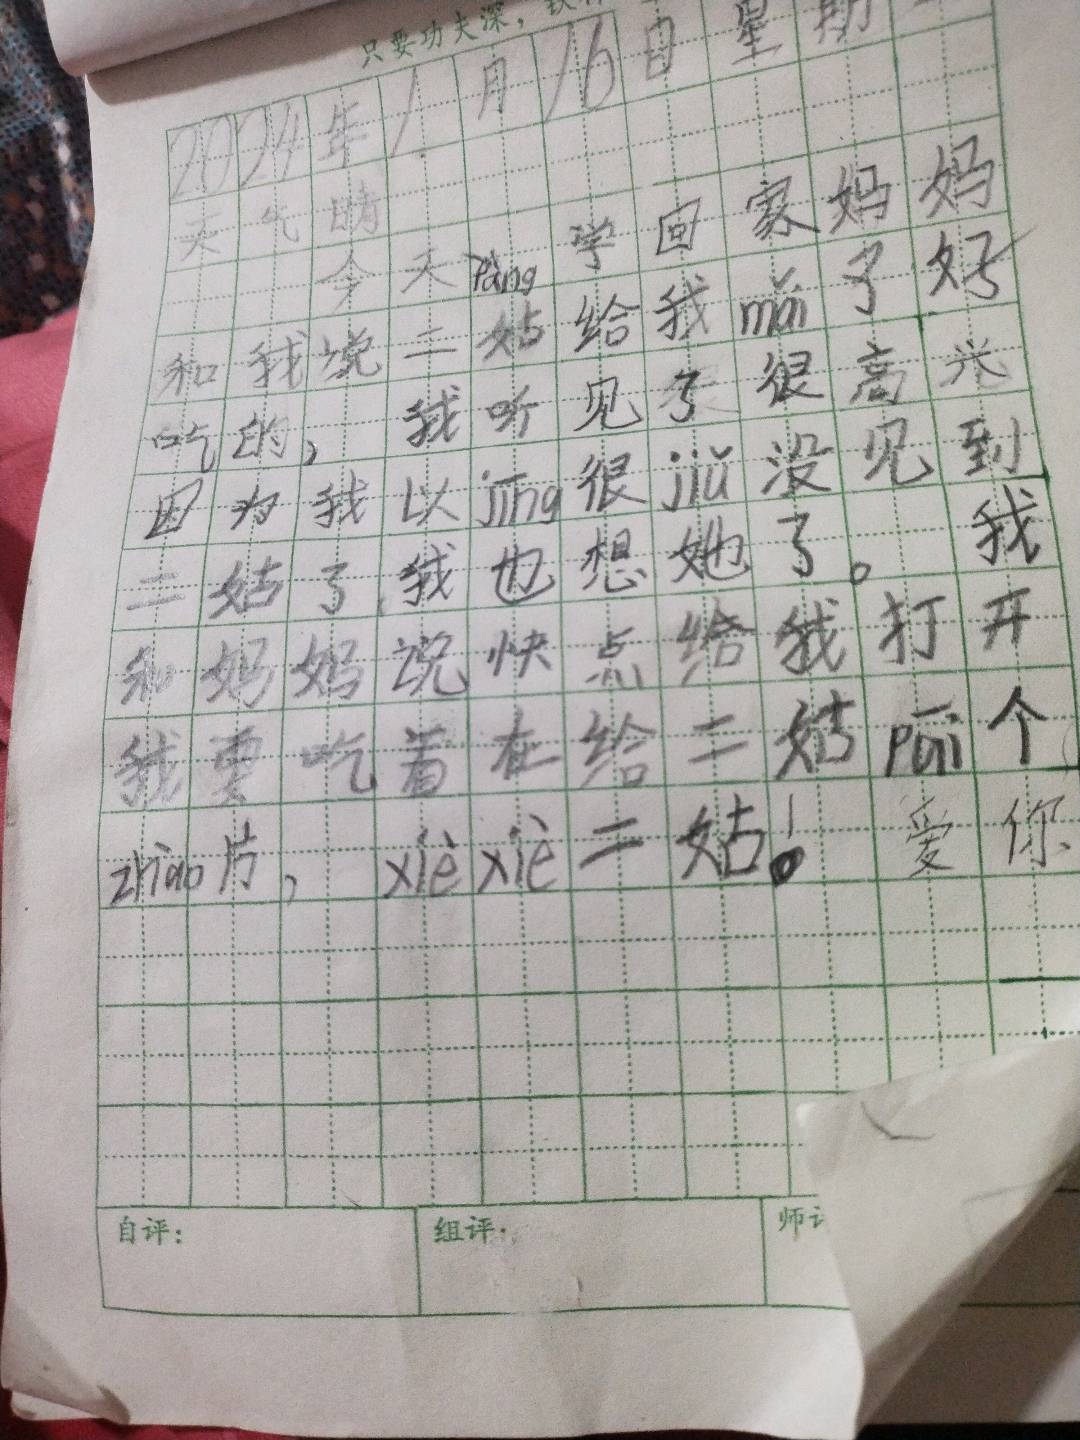 只要功夫深，铁
2024年1月16日星期
天气晴
今天fàng学回家妈妈
和我说二姑给我mǎi了好
吃的，我听见了很高兴
因为我以jīng很jiǔ没见到
二姑了,我也想她了。我
和妈妈说快点给我打开
我要吃着在给二姑pāi个
zhào片，xièxiè二姑！爱你
自评：
组评：
师